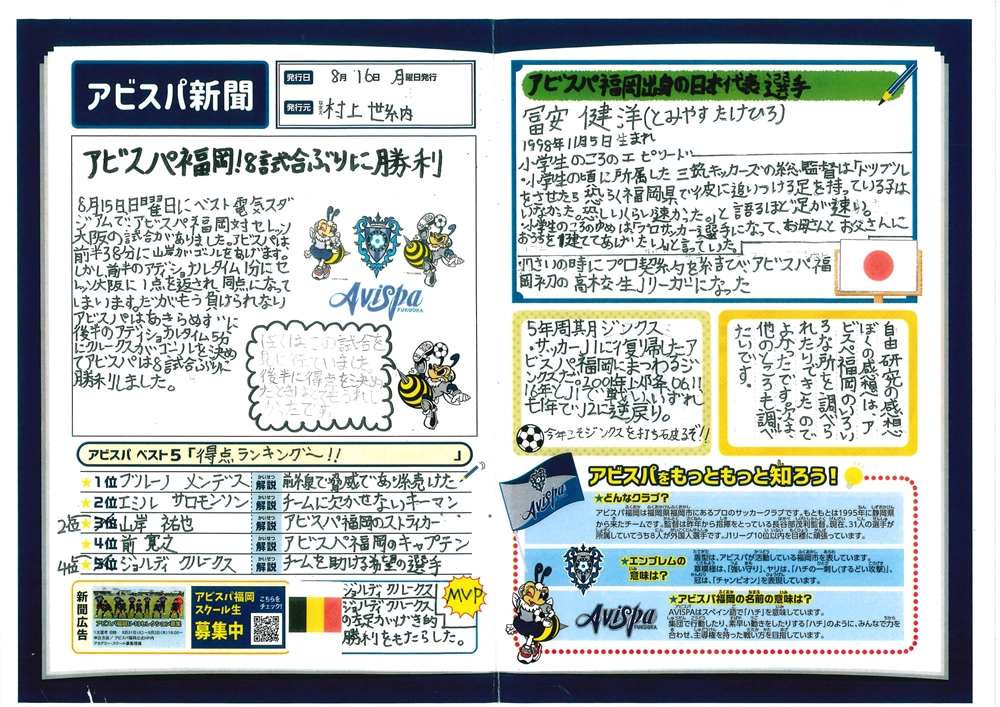 アビスパ新聞
発行日 8月 16日 月曜日発行
発行元 村上 世紘
アビスパ福岡!8試合ぶりに勝利
8月15日日曜日にベスト電気スタ
ジアムで、アビスパ福岡対セレッソ
大阪の試合がありました。アビスパは、
前半38分に山岸がゴールをあげます。
しかし前半のアディショナルタイム1分にセ
レッソ大阪に1点を返され同点になって
しまいます。だがもう負けられない
アビスパはあきらめずに
後半のアディショナルタイム5分
にクルークスがゴールを決め
てアビスパは8試合ぶりに
勝利しました。
AVISPA
FUKUOKA
ぼくはこの試合を
見に行っていました。
後半に得点を決め
たときはとてもうれし
かったです。
アビスパ ベスト5「得点ランキング〜!!」
★1位 ブルーノ メンデス 解説 前線で脅威であり続けた
★2位 エミル サロモンソン 解説 チームに欠かせないキーマン
2位 ★3位 山岸 祐也 解説 アビスパ福岡のストライカー
★4位 前 寛之 解説 アビスパ福岡のキャプテン
4位 ★5位 ジョルディ クルークス 解説 チームを助ける希望の選手
新聞広告
アビスパ福岡
スクール生
募集中
こちらを
チェック!
ジョルディ クルークス
ジョルディ クルークス
の左足がげき的
勝利をもたらした。
MVP
アビスパ福岡出身の日本代表選手
冨安 健洋(とみやす たけひろ)
1998年11月5日生まれ
小学生のころのエピソード
・小学生の頃に所属した三筑キッカーズの総監督は「ドリブル
をさせたら恐らく福岡県で彼に追いつける足を持っている子は
いなかった。恐しいくらい速かった。」と語るほど足が速い。
・小学生のころのゆめは「プロサッカー選手になって、お母さんとお父さんに
おうちを建ててあげたい」と言っていた。
・17さいの時にプロ契約を結びアビスパ福
岡初の高校生Jリーガーになった
5年周期ジンクス
・サッカーJ1に復帰したア
ビスパ福岡にまつわるジ
ンクスだ。2001年以降、06、11
16年とJ1で戦いいずれ
も1年でJ2に逆戻り。
今年こそジンクスを打ち石皮るぞ!!
自由研究の感想
ぼくの感想は、ア
ビスパ福岡のいろい
ろな所を調べら
れたりできたので
よかったです。次は、
他のところも調べ
たいです。
アビスパをもっともっと知ろう!
★どんなクラブ?
アビスパ福岡は福岡県福岡市にあるプロのサッカークラブです。もともとは1995年に静岡県
から来たチームです。監督は昨年から指揮をとっている長谷部茂利監督。現在、31人の選手が
所属していてうち8人が外国人選手です。Jリーグ10位以内を目標に頑張っています。
★エンブレムの
意味は?
盾型は、アビスパが活動している福岡市を表しています。
草模様は、「強い守り」、ヤリは、「ハチの一刺し(するどい攻撃)」、
冠は、「チャンピオン」を表現しています。
★アビスパ福岡の名前の意味は?
AVISPAはスペイン語で「ハチ」を意味しています。
集団で行動したり、素早い動きをしたりする「ハチ」のように、みんなで力を
合わせ、主導権を持った戦い方を目指しています。
AVISPA
FUKUOKA